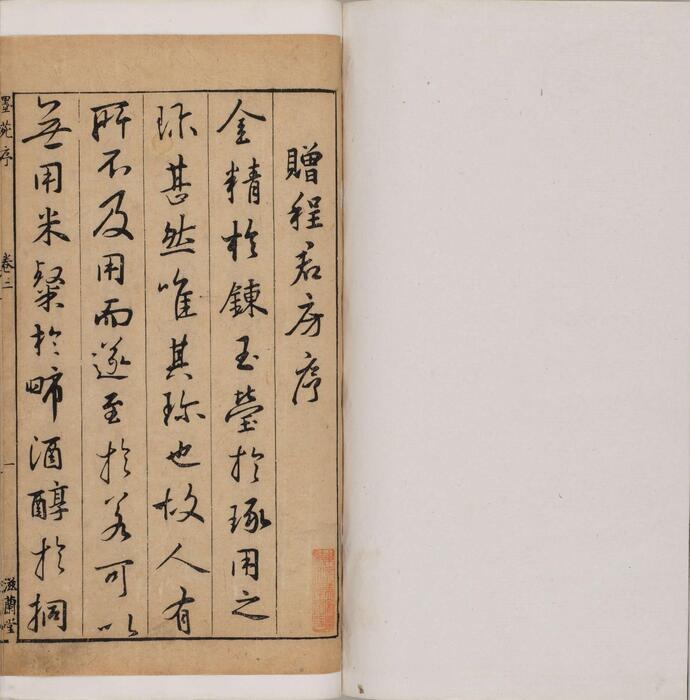 贈程君房序
金精於鍊玉瑩於琢用之
珎甚然唯其珎也故人有
所不及用而遂至於若可以
無用米粲於㫷酒醇於挏
墨苑序
卷三
一
滋蘭堂